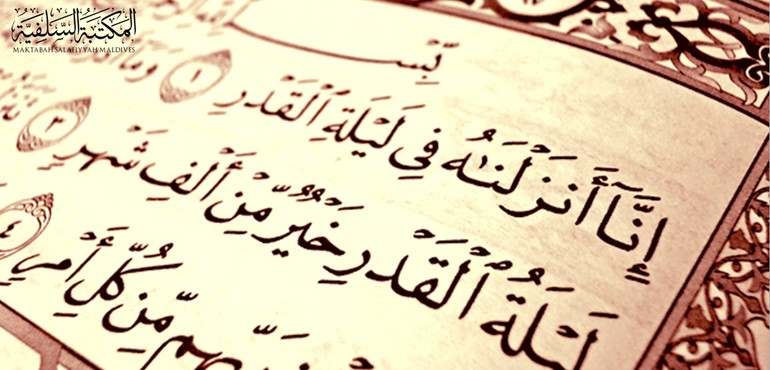 المكتبة السلفية
MAKTABAH SALAFIYYAH MALDIVES
إِنَّآ أَنزَلْنَٰهُ فِي لَيْلَةِ ٱلْقَدْرِ ١
لَيْلَةُ ٱلْقَدْرِ خَيْرٌ مِّنْ أَلْفِ شَهْرٍ ٣
رَبِّهِم مِّن كُلِّ أَمْرٍ ٤